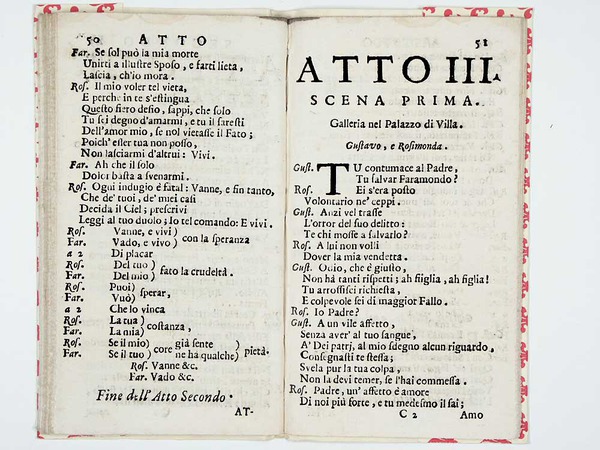 50 ATTO
Far. Se sol può la mia morte
Unirti a illustre Sposo, e farti lieta,
Lascia, ch'io mora.
Ros. Il mio voler tel vieta,
E perche in te s'estingua
Questo fiero desio, sappi, che solo
Tu sei degno d'amarmi, e tu il saresti
Dell'amor mio, se nol vietasse il Fato;
Poich' esser tua non posso,
Non lasciarmi d'altrui: Vivi.
Far. Ah che il solo
Dolor basta a svenarmi.
Ros. Ogni indugio è fatal: Vanne, e sin tanto,
Che de' tuoi, de' miei casi
Decida il Ciel; prescrivi
Leggi al tuo duolo; io tel comando: E vivi.
Ros. Vanne, e vivi)
Far. Vado, e vivo) con la speranza
a 2 Di placar
Ros. Del tuo)
Far. Del mio) fato la crudeltà.
Ros. Puoi)
Far. Vuò) sperar,
a 2 Che lo vinca
Ros. La tua)
Far. La mia) costanza,
Ros. Se il mio) già sente )
Far. Se il tuo) core ne ha qualche) pietà.
Ros. Vanne &c.
Far. Vado &c.
Fine dell'Atto Secondo.
AT-
51
ATTO III.
SCENA PRIMA.
Galleria nel Palazzo di Villa.
Gustavo, e Rosimonda.
Gust. TU contumace al Padre,
Tu salvar Faramondo?
Ros. Ei s'era posto
Volontario ne' ceppi.
Gust. Anzi vel trasse
L'orror del suo delitto:
Te chi mosse a salvarlo?
Ros. A lui non volli
Dover la mia vendetta.
Gust. Odio, che è giusto,
Non hà tanti rispetti; ah fiiglia, ah figlia!
Tu arrossisci richiesta,
E colpevole sei di maggior Fallo.
Ros. Io Padre?
Gust. A un vile affetto,
Senza aver' al tuo sangue,
A' Dei patrj, al mio sdegno alcun riguardo,
Consegnasti te stessa;
Svela pur la tua colpa,
Non la devi temer, se l'hai commessa.
Ros. Padre, un' affetto è amore
Di noi più forte, e tu medesmo il sai;
C 2 Amo